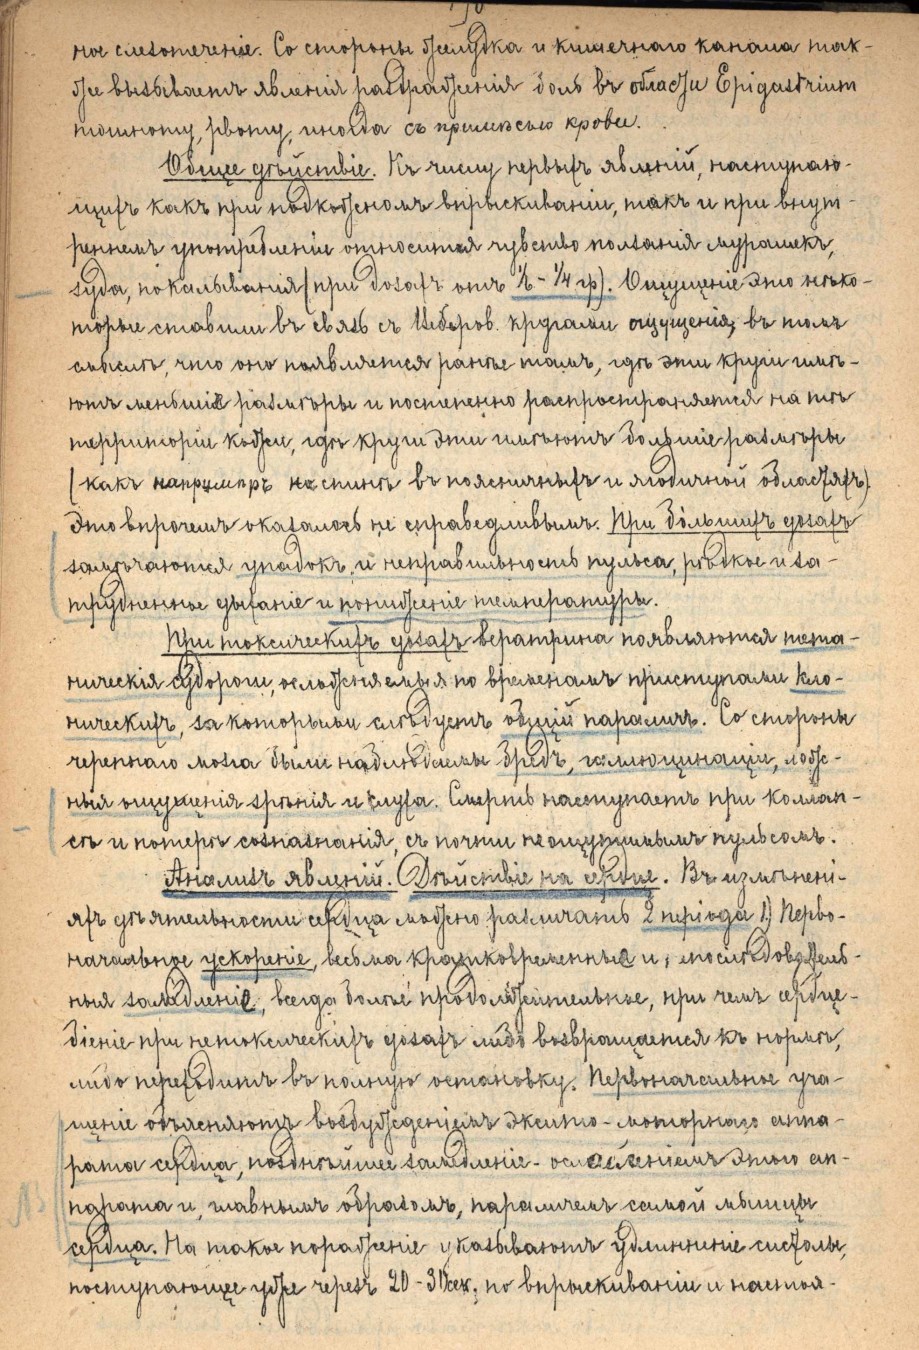 ное слезотеченіе. Со стороны желудка и кишечнаго канала так-
же вызываетъ явленія раздраженія боль въ области Epigastrium
тошноту, рвоту, иногда съ примѣсью крови.
Общее дѣйствіе. Къ числу первыхъ явленій, наступаю-
щихъ какъ при подкожномъ впрыскиваніи, такъ и при внут-
реннемъ употребленіи относится чувство ползанія мурашекъ,
зуда, покалыванія (при дозахъ отъ 1/6 - 1/4 гр). Ощущеніе это нѣко-
торые ставили въ связь съ Веберов. кругами ощущенія, въ томъ
смыслѣ, что оно появляется ранѣе тамъ, гдѣ эти круги имѣ-
ютъ меньшіе размѣры и постепенно распространяется на тѣ
территоріи кожи, гдѣ круги эти имѣютъ большіе размѣры
(какъ напримѣръ на спинѣ въ поясничныхъ и ягодичной областяхъ)
Это впрочемъ оказалось не справедливымъ. При бо́льшихъ дозахъ
замѣчаются упадокъ и неправильность пульса, рѣдкое и за-
трудненное дыханіе и пониженіе температуры.
При токсическихъ дозахъ вератрина появляются тета-
ническія судороги, осложняемыя по временамъ приступами кло-
ническихъ, за которыми слѣдуетъ общій параличъ. Со стороны
черепнаго мозга были наблюдаемы бредъ, галлюцинаціи, лож-
ныя ощущенія зрѣнія и слуха. Смерть наступаетъ при коллап-
сѣ и потерѣ сознанія, съ почти неощутимымъ пульсомъ.
Анализъ явленій. Дѣйствіе на сердце. Въ измѣнені-
яхъ дѣятельности сердца можно различать 2 періода 1) Перво-
начальное ускореніе, весьма кратковременные и, послѣдователь-
ныя замедленіе, всегда болѣе продолжительное, при чемъ сердце-
біеніе при нетоксическихъ дозахъ либо возвращается къ нормѣ,
либо переходитъ въ полную остановку. Первоначальное уча-
щеніе объясняютъ возбужденіемъ эксито-моторнаго аппа-
рата сердца, позднѣйшее замедленіе - ослабленіемъ этого ап-
парата и, главнымъ образомъ, параличемъ самой мышцы
сердца. На такое пораженіе указываютъ удлинненіе систолы,
поступающее уже черезъ 20 - 30 сек. по впрыскиваніи и настоя-